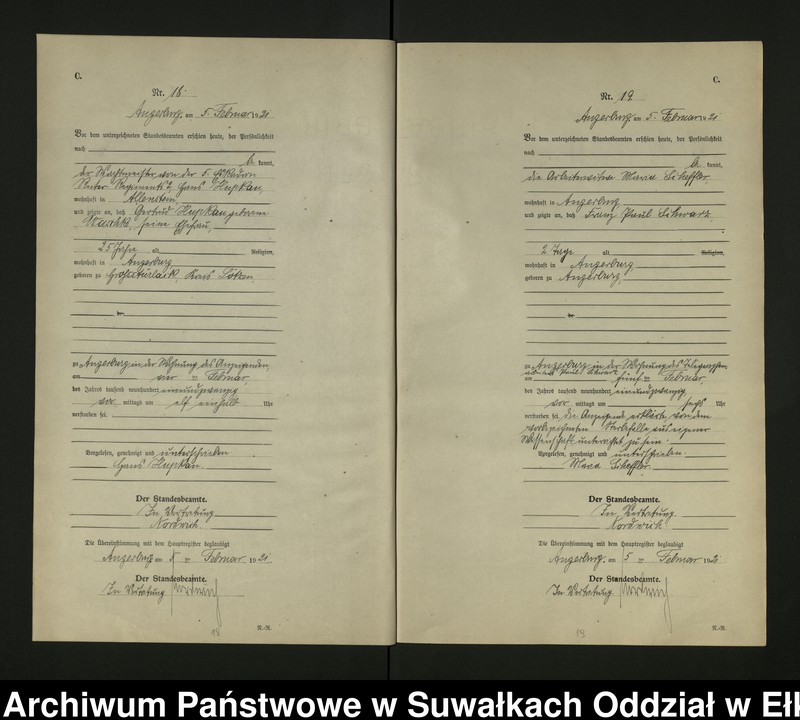 C.
Nr. 18.
Angerburg am 5. Februar 1921
Vor dem unterzeichneten Standesbeamten erschien heute, der Persönlichkeit
nach
kannt,
der Wachtmeister von der 5. Eskadron
Reiter Regiments 2, Hans Kupkan,
wohnhaft in Allenstein
und zeigte an, daß Gertrud Kupkan geborene
seine Ehefrau,
25 Jahre alt Religion,
wohnhaft in Angerburg
geboren zu Kreis Lötzen
zu Angerburg in der Wohnung des Anzeigenden
am vier ten Februar
des Jahres tausend neunhundert einundzwanzig
vor mittags um elf einhalb Uhr
verstorben sei.
Vorgelesen, genehmigt und unterschrieben
Hans Kupkan.
Der Standesbeamte.
In Vertretung
Nordwich
Die Übereinstimmung mit dem Hauptregister beglaubigt
Angerburg am 5 ten Februar 1921
Der Standesbeamte.
In Vertretung
18
N.-R.
C.
Nr. 19
Angerburg am 5. Februar 1921
Vor dem unterzeichneten Standesbeamten erschien heute, der Persönlichkeit
nach
kannt,
die Arbeiterwitwe Maria Scheffler,
wohnhaft in Angerburg
und zeigte an, daß Franz Paul Schwarz
2 Tage alt Religion,
wohnhaft in Angerburg,
geboren zu Angerburg,
zu Angerburg in der Wohnung des
Paul Schwarz
am fünf ten Februar
des Jahres tausend neunhundert einundzwanzig
vor mittags um sechs Uhr
verstorben sei. Die Anzeigende erklärte von dem
vorbezeichneten Sterbefalle aus eigener
Wissenschaft unterrichtet zu sein.
Vorgelesen, genehmigt und unterschrieben.
Maria Scheffler.
Der Standesbeamte.
In Vertretung.
Nordwich
Die Übereinstimmung mit dem Hauptregister beglaubigt
Angerburg, am 5 ten Februar 1921
Der Standesbeamte.
In Vertretung
19
N.-R.
Archiwum Państwowe w Suwałkach Oddział w Eł